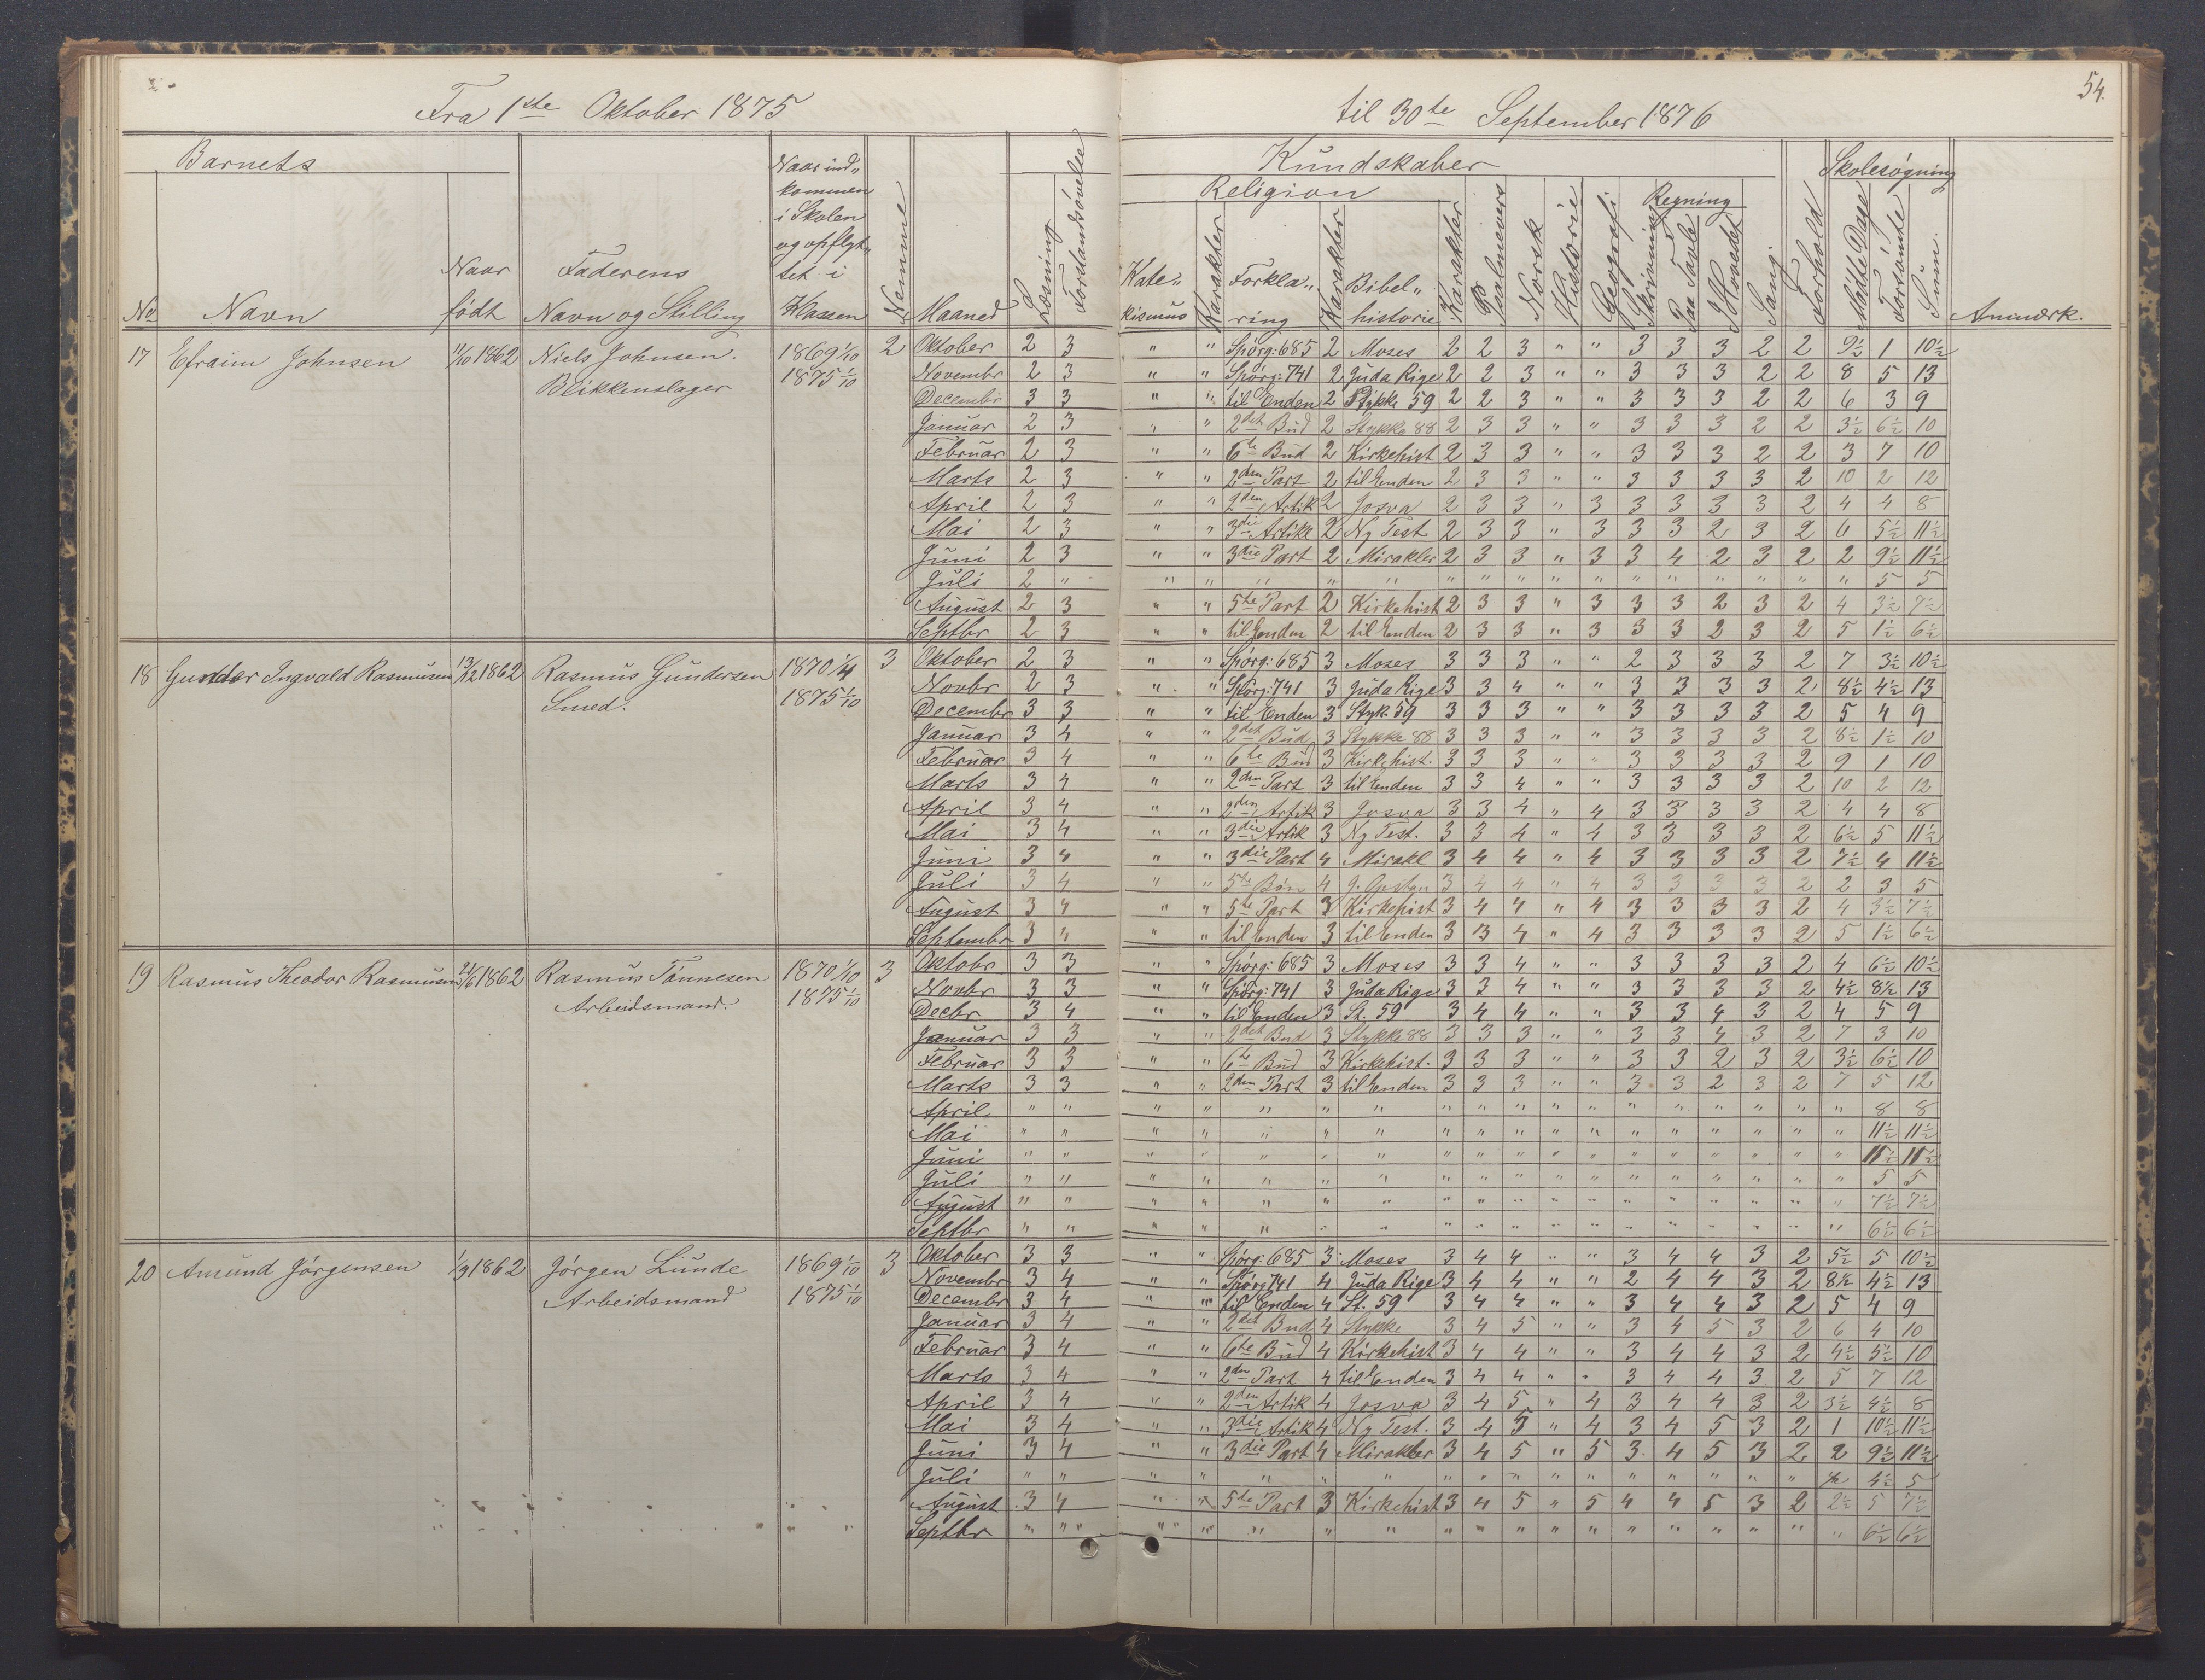 54.
Fra 1ste Oktober 1875 til 30te September 1876
Barnets Naar ind„ Kundskaber Skolesøgning
kommen Religion Regning
i Skolen
og opflyt„
Naar Faderens tet i Kate„ Forkla„ Bibel„
No Navn født Navn og Stilling Klassen Nemme Maaned Læsning Forstandsøvelse kismus Karakter ring Karakter historie Karakter Psalmevers Norsk Historie Geografi Skrivning Paa Tavle I Hovedet Sang Forhold Mødte Dage Forsømte Sum. Anmærk.
17 Efraim Johnsen 11/10 1862 Niels Johnsen. 1869 1/10 2 Oktober 2 3 " " Spörg: 685 2 Moses 2 2 3 " " 3 3 3 2 2 9½ 1 10½
Blikkenslager 1875 1/10 Novembr 2 3 " " Spörg: 741 2 Juda Rige 2 2 3 " " 3 3 3 2 2 8 5 13
Decembr 3 3 " " til Enden 2 Stykke 59 2 2 3 " " 3 3 3 2 2 6 3 9
Januar 2 3 " " 2det Bud 2 Stykke 88 2 3 3 " " 3 3 3 2 2 3½ 6½ 10
Februar 2 3 " " 6te Bud 2 Kirkehist 2 3 3 " " 3 3 3 2 2 3 7 10
Marts 2 3 " " 2den Part 2 til Enden 2 3 3 " " 3 3 3 3 2 10 2 12
April 2 3 " " 2den Artik 2 Josva 2 3 3 " 3 3 3 3 3 2 4 4 8
Mai 2 3 " " 3die Artike 2 Ny Test 2 3 3 " 3 3 3 2 3 2 6 5½ 11½
Juni 2 3 " " 3die Part 2 Mirakler 2 3 3 " 3 3 4 2 3 2 2 9½ 11½
Juli 2 " " " " " " " " " " " " " " " " " 5 5
August 2 3 " " 5te Part 2 Kirkehist 2 3 3 " 3 3 3 2 3 2 4 3½ 7½
Septbr 2 3 " " til Enden 2 til Enden 2 3 3 " 3 3 3 2 3 2 5 1½ 6½
18 Gunder Ingvald Rasmusen 13/12 1862 Rasmus Gundersen 1870 1/4 3 Oktober 2 3 " " Spörg: 685 3 Moses 3 3 3 " " 2 3 3 3 2 7 3½ 10½
Smed. 1875 1/10 Novbr 2 3 " " Spörg: 741 3 Juda Rige 3 3 4 " " 3 3 3 3 2 8½ 4½ 13
Decembr 3 3 " " til Enden 3 Styk. 59 3 3 3 " " 3 3 3 3 2 5 4 9
Januar 3 4 " " 2det Bud 3 Stykke 88 3 3 3 " " 3 3 3 3 2 8½ 1½ 10
Februar 3 4 " " 6te Bud 3 Kirkehist. 3 3 3 " " 3 3 3 3 2 9 1 10
Marts 3 4 " " 2den Part 3 til Enden 3 3 4 " " 3 3 3 3 2 10 2 12
April 3 4 " " 2den Artik 3 Josva 3 3 4 " 4 3 3 3 3 2 4 4 8
Mai 3 4 " " 3die Artik 3 Ny Test. 3 3 4 " 4 3 3 3 3 2 6½ 5 11½
Juni 3 4 " " 3die Part 4 Mirakl 3 4 4 " 4 3 3 3 3 2 7½ 4 11½
Juli 3 4 " " 5te Bön 4 3 4 4 " 4 3 3 3 3 2 2 3 5
August 3 4 " " 5te Part 3 Kirkehist 3 4 4 " 4 3 3 3 3 2 4 3½ 7½
Septembr 3 4 " " til Enden 3 til Enden 3 3 4 " 4 3 3 3 3 2 5 1½ 6½
19 Rasmus Theodor Rasmusen 1862 Rasmus Tönnesen 1870 1/10 3 Oktobr 3 3 " " Spörg: 685 3 Moses 3 3 4 " " 3 3 3 3 2 4 6½ 10½
Arbeidsmand. 1875 1/10 Novbr 3 3 " " Spörg: 741 3 Juda Rige 3 3 4 " " 3 3 3 3 2 4½ 8½ 13
Decbr 3 4 " " til Enden 3 St. 59 3 4 4 " " 3 3 4 3 2 4 5 9
Januar 3 3 " " 2det Bud 3 Stykke 88 3 3 3 " " 3 3 4 3 2 7 3 10
Februar 3 3 " " 6te Bud 3 Kirkehist. 3 3 3 " " 3 3 2 3 2 3½ 6½ 10
Marts 3 3 " " 2den Part 3 til Enden 3 3 3 " " 3 3 2 3 2 7 5 12
April " " " " " " " " " " " " " " " " " " 8 8
Mai " " " " " " " " " " " " " " " " " " 11½ 11½
Juni " " " " " " " " " " " " " " " " " " 11½ 11½
Juli " " " " " " " " " " " " " " " " " " 5 5
August " " " " " " " " " " " " " " " " " " 7½ 7½
Septbr " " " " " " " " " " " " " " " " " " 6½ 6½
20 Amund Jörgensen 1/9 1862 Jörgen Lunde 1869 1/10 3 Oktober 3 3 " " Spörg: 685 3 Moses 3 4 4 " " 3 4 4 3 2 5½ 5 10½
Arbeidsmand 1875 1/10 Novembr 3 4 " " Spörg 741 4 Juda Rige 3 4 4 " " 2 4 4 3 2 8½ 4½ 13
Decembr 3 4 " " til Enden 4 St. 59 3 4 4 " " 3 4 4 3 2 5 4 9
Januar 3 4 " " 2det Bud 4 Stykke 3 4 5 " " 3 4 5 3 2 6 4 10
Februar 3 4 " " 6te Bud 4 Kirkehist 3 4 4 " " 3 4 4 3 2 4½ 5½ 10
Marts 3 4 " " 2den Part 4 til Enden 3 4 4 " " 3 4 4 3 2 5 7 12
April 3 4 " " 2den Artik 4 Josva 3 4 5 " 4 3 4 4 3 2 3½ 4½ 8
Mai 3 4 " " 3die Artik 4 Ny Test. 3 4 5 " 4 3 4 5 3 2 1 10½ 11½
Juni 3 4 " " 3die Part 4 Mirakler 3 4 5 " 5 3 4 5 3 2 2 9½ 11½
Juli " " " " " " " " " " " " " " " " " ½ 4½ 5
August 3 4 " " 5te Part 3 Kirkehist 3 4 5 " 5 4 4 5 3 2 2½ 5 7½
Septbr " " " " " " " " " " " " " " " " " " 6½ 6½